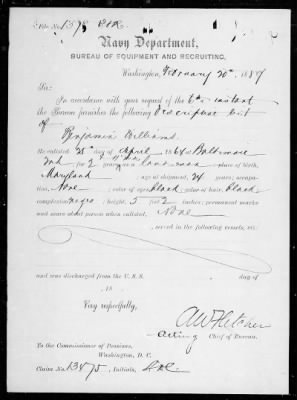 File No. 1378
Navy Department,
BUREAU OF EQUIPMENT AND RECRUITING,
Washington, February 20th, 1887
Sir:
In accordance with your request of the 6th instant
the Bureau furnishes the following descriptive list
of
Benjamin Williams.
He enlisted 25th day of April 1864 at Baltimore
Md for 2 years, as a landsman place of birth,
Maryland age at shipment, 24 years; occupa-
tion, None; color of eyes black color of hair, black
complexion negro; height, 5 feet 2 inches; permanent marks
and scars about person when enlisted, None
, served in the following vessels, viz:
and was discharged from the U. S. S. day of
18
Very respectfully,
A W Fletcher
Acting Chief of Bureau.
To the Commissioner of Pensions,
Washington, D. C.
Claim No. 13475, Initials,